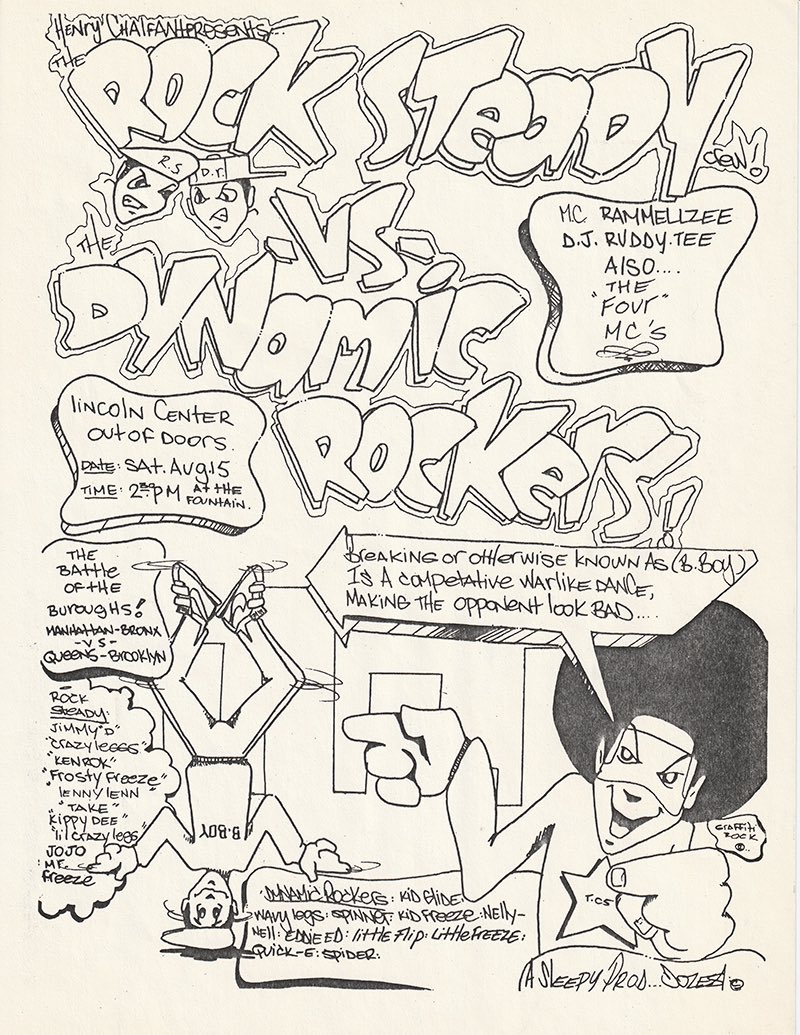 Henry Chalfant presents...
THE
ROCK STEADY
crew!
R.S
D.R.
-VS-
THE
DYNAMIC
ROCKERS!!
MC RAMMELLZEE
D.J. RUDDY.TEE
ALSO....
THE
"FOUR"
MC'S
LINCOLN CENTER
OUT OF DOORS.
DATE: SAT. AUG.15
TIME: 2:30 PM AT THE
FOUNTAIN.
THE
BATTLE
OF THE
BUROUGHS!
MANHATTAN-BRONX
-VS-
QUEENS-BROOKLYN
BREAKING OR OTHERWISE KNOWN AS (B.BOY)
IS A COMPETATIVE WARLIKE DANCE,
MAKING THE OPPONENT LOOK BAD....
ROCK
STEADY:
JIMMY "D"
"CRAZY LEGGS"
"KEN ROK"
"FROSTY FREEZE"
"LENNY LENN
"TAKE"
"KIPPY DEE"
"LIL CRAZY LEGS"
JOJO
MR.
FREEZE
B-BOY
GRAFFITI
ROCK
T.C5
DYNAMIC ROCKERS: KID GLIDE:
WAVY LEGS: SPINNER: KID FREEZE: NELLY-
NELL: EDDIE ED: LITTLE FLIP: LITTLE FREEZE:
QUICK-E: SPIDER:
A SLEEPY PROD...